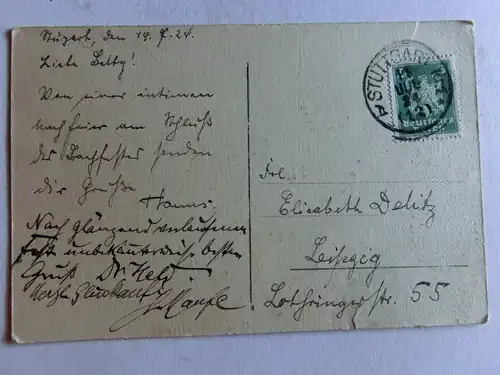 Stuttgart, den 14. 7. 24.
Liebe Betty!
Von einer intimen
nachfeier am Schluß
des Bachfestes senden
dir Grüße
Hanns.
Nach glänzend verlaufenem
Fest unbekannterweise besten
Gruß Dr.
STUTTGART
Deutsches
Frl.
Elisabeth Delitz
Leipzig
Lothringerstr 55